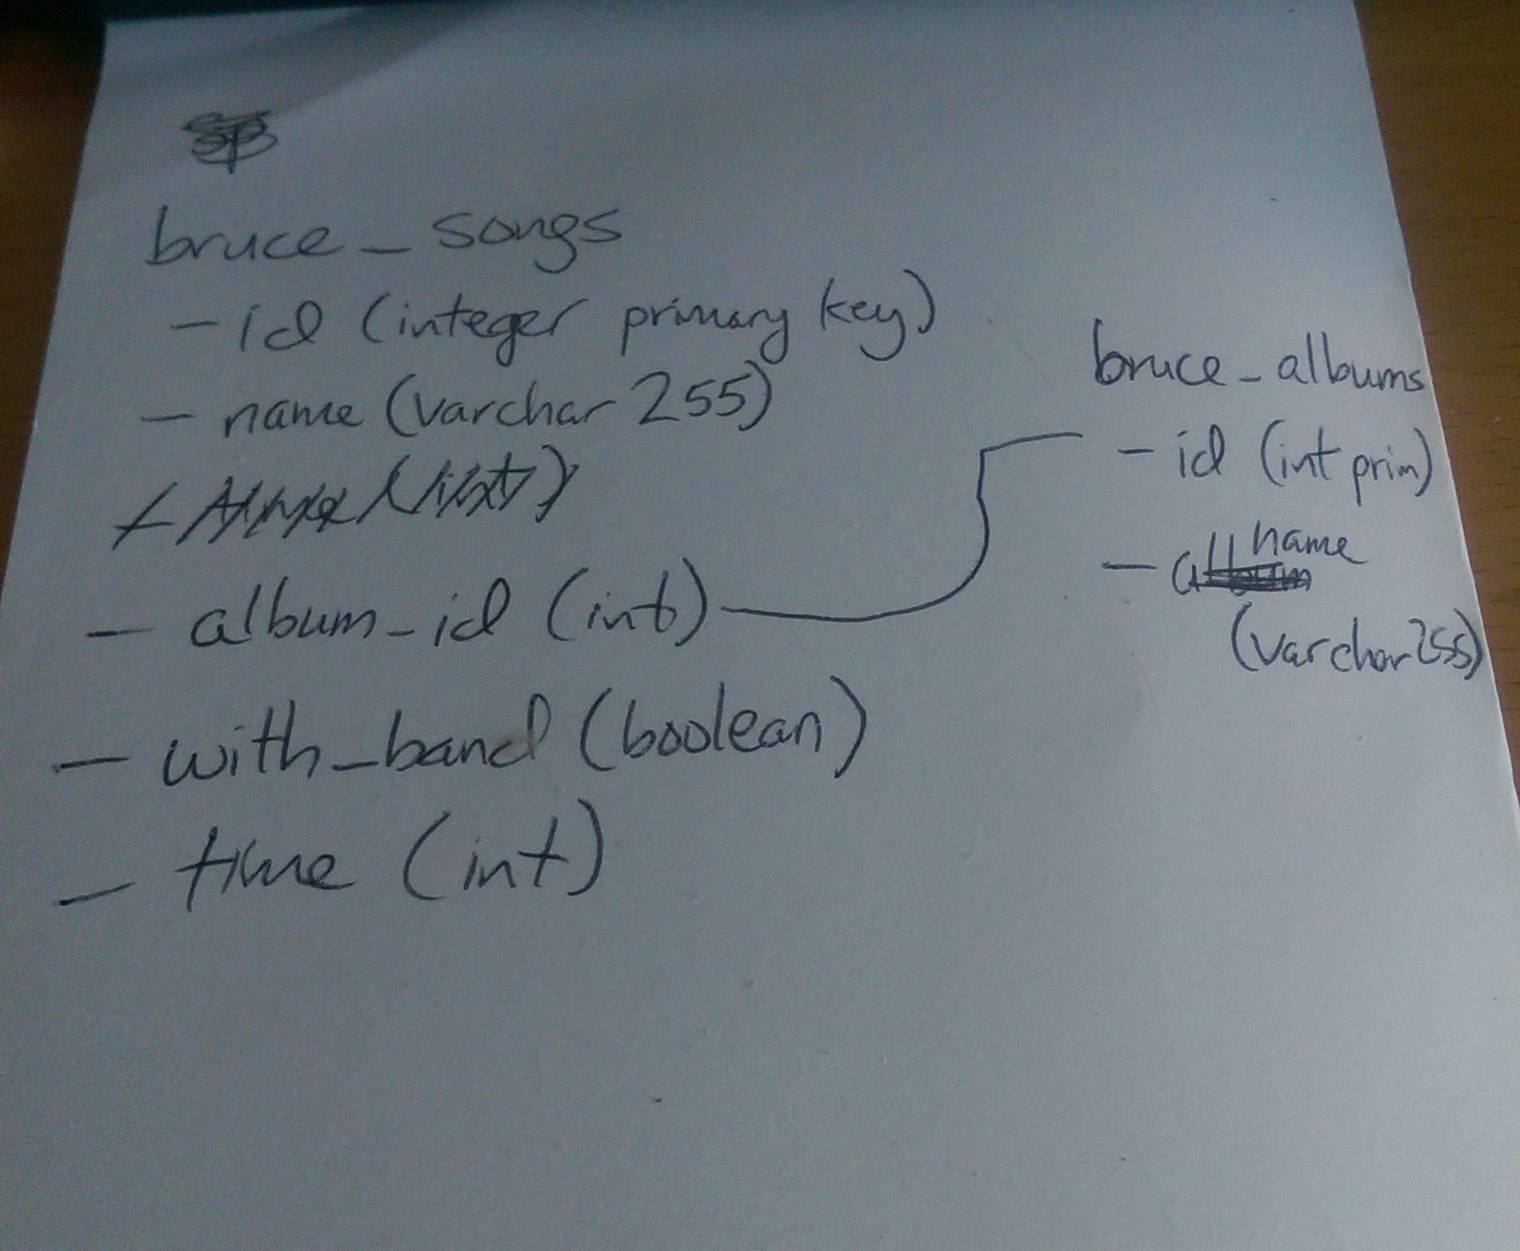 bruce_songs
- id (integer primary key)
- name (varchar 255)
- album_id (int)
- with_band (boolean)
- time (int)
bruce_albums
- id (int prim)
- name
(varchar 255)